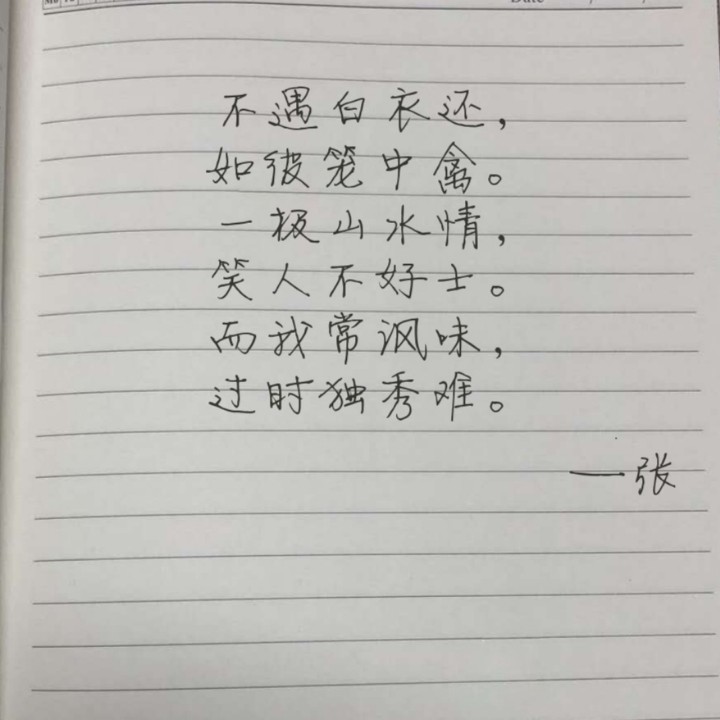 Date / /
不遇白衣还,
如彼笼中禽。
一极山水情,
笑人不好士。
而我常讽味,
过时独秀难。
——张